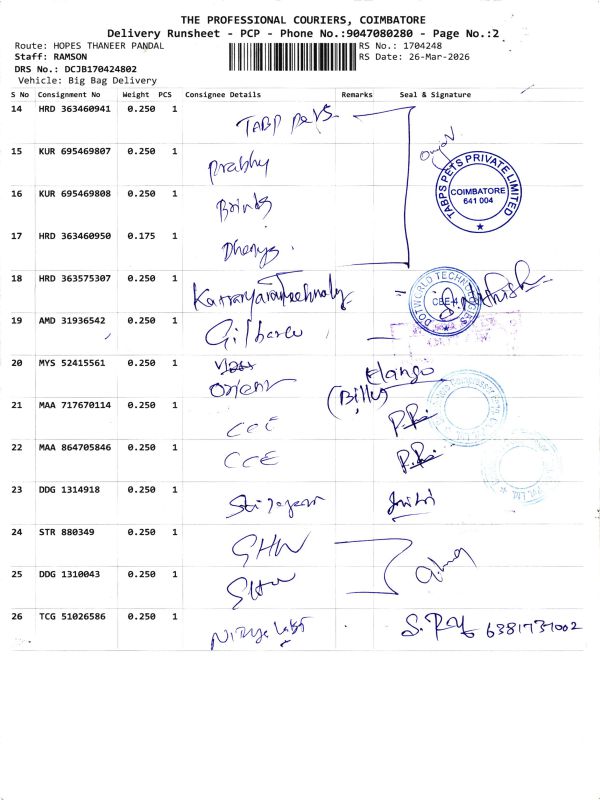 THE PROFESSIONAL COURIERS, COIMBATORE
Delivery Runsheet - PCP - Phone No.:9047080280 - Page No.:2
Route: HOPES THANEER PANDAL RS No.: 1704248
Staff: RAMSON RS Date: 26-Mar-2026
DRS No.: DCJB170424802
Vehicle: Big Bag Delivery
S No Consignment No Weight PCS Consignee Details Remarks Seal & Signature
14 HRD 363460941 0.250 1 TABP Pets
15 KUR 695469807 0.250 1 Prabhy
TABPS PETS PRIVATE LIMITED
COIMBATORE
641 004
16 KUR 695469808 0.250 1
17 HRD 363460950 0.175 1
18 HRD 363575307 0.250 1
DOTWORLD TECHNOLOGIES
CBE-4
19 AMD 31936542 0.250 1 Gilbarco
20 MYS 52415561 0.250 1 Orient Elango
21 MAA 717670114 0.250 1 CCE
22 MAA 864705846 0.250 1 CCE
23 DDG 1314918 0.250 1
24 STR 880349 0.250 1 GHW
25 DDG 1310043 0.250 1
26 TCG 51026586 0.250 1 6381737002